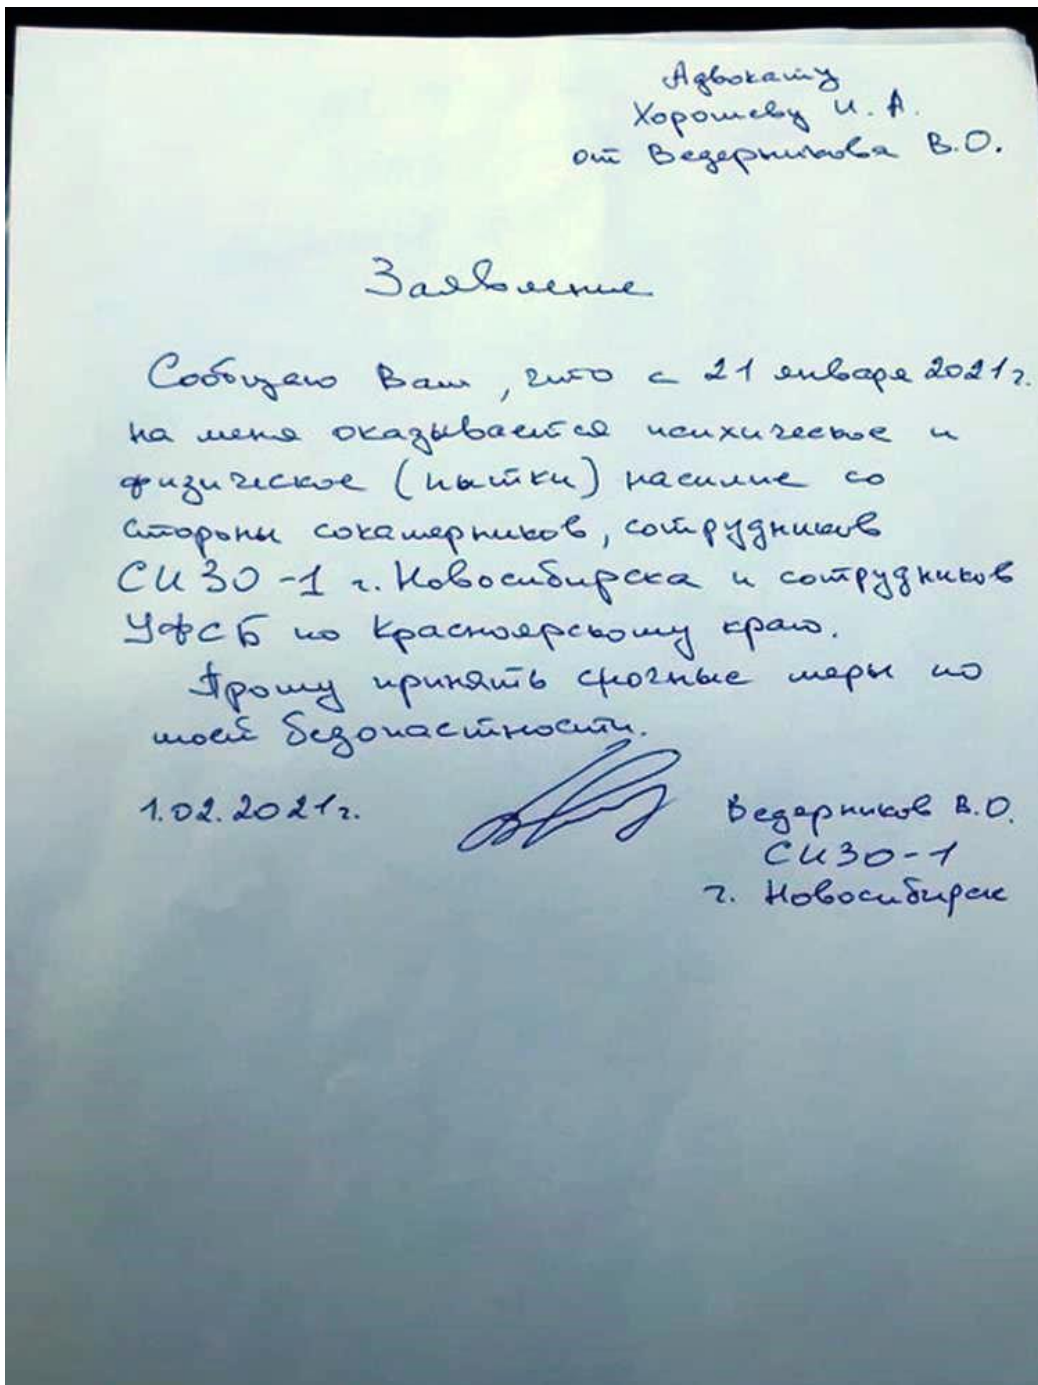 Адвокату
Хорошеву И. А.
от Ведерникова В.О.
Заявление
Сообщаю Вам, что с 21 января 2021г.
на меня оказывается психическое и
физическое (пытки) насилие со
стороны сокамерников, сотрудников
СИЗО-1 г. Новосибирска и сотрудников
УФСБ по Красноярскому краю.
Прошу принять срочные меры по
моей безопастности.
1.02.2021г.
Ведерников В.О.
СИЗО-1
г. Новосибирск